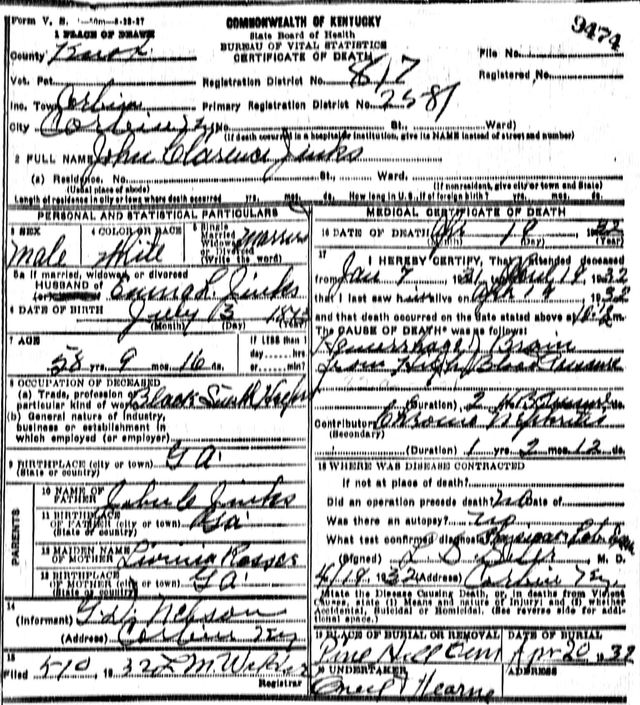 COMMONWEALTH OF KENTUCKY
State Board of Health
BUREAU OF VITAL STATISTICS
CERTIFICATE OF DEATH
9474
Form V. S.
1 PLACE OF DEATH
County Knox
File No.
Vot. Pct.
Registration District No. 817
Registered No.
Inc. Town Corbin
Primary Registration District No. 2587
City Corbin Ky No. St., Ward)
(If death occurred in a hospital or institution, give its NAME instead of street and number)
2 FULL NAME John Clarence Jinks
(a) Residence. No. St., Ward.
(Usual place of abode) (If nonresident, give city or town and State)
Length of residence in city or town where death occurred yrs. mos. ds. How long in U. S., if of foreign birth? yrs. mos. ds.
PERSONAL AND STATISTICAL PARTICULARS
3 SEX
Male
4 COLOR OR RACE
White
5 Single
Married
Widowed
or Divorced
(Write the word)
Married
5a If married, widowed or divorced
HUSBAND of Emma L. Jinks
6 DATE OF BIRTH July 13
(Month) (Day) (Year)
7 AGE
58 yrs. 9 mos. 16 ds.
If LESS than 1
day, hrs.
or min.
8 OCCUPATION OF DECEASED
(a) Trade, profession or
particular kind of work Black Smith Helper
(b) General nature of Industry,
business or establishment in
which employed (or employer)
9 BIRTHPLACE (city or town) GA
(State or country)
PARENTS
10 NAME OF
FATHER John C Jinks
11 BIRTHPLACE
OF FATHER (city or town) Ga
(State or country)
12 MAIDEN NAME
OF MOTHER
13 BIRTHPLACE
OF MOTHER (city or town) GA
(State or country)
14
(Informant) Nelson
(Address) Corbin Ky
15
Filed 5/10 1932
Registrar
MEDICAL CERTIFICATE OF DEATH
16 DATE OF DEATH Apr 19 1932
(Day) (Year)
17 I HEREBY CERTIFY, That I attended deceased
from Jan 7 1931, April 19 1932
that I last saw him alive on Apr 19, 1932
and that death occurred on the date stated above at m.
The CAUSE OF DEATH* was as follows:
Hemorrhage Brain
from High Blood Pressure
(Duration) 2
Contributory Chronic Nephritis
(Secondary)
(Duration) 1 yrs. 2 mos. 12 ds.
18 WHERE WAS DISEASE CONTRACTED
If not at place of death?
Did an operation precede death? no Date of
Was there an autopsy? no
What test confirmed diagnosis?
(Signed) M. D.
4/19 1932 (Address) Corbin Ky.
*State the Disease Causing Death, or, in deaths from Violent
Causes, state (1) Means and nature of Injury; and (2) whether
Accidental, Suicidal or Homicidal. (See reverse side for addi-
tional space.)
19 PLACE OF BURIAL OR REMOVAL
Pine Hill Cem
DATE OF BURIAL
Apr 20 1932
20 UNDERTAKER
Oneil Hearne
ADDRESS